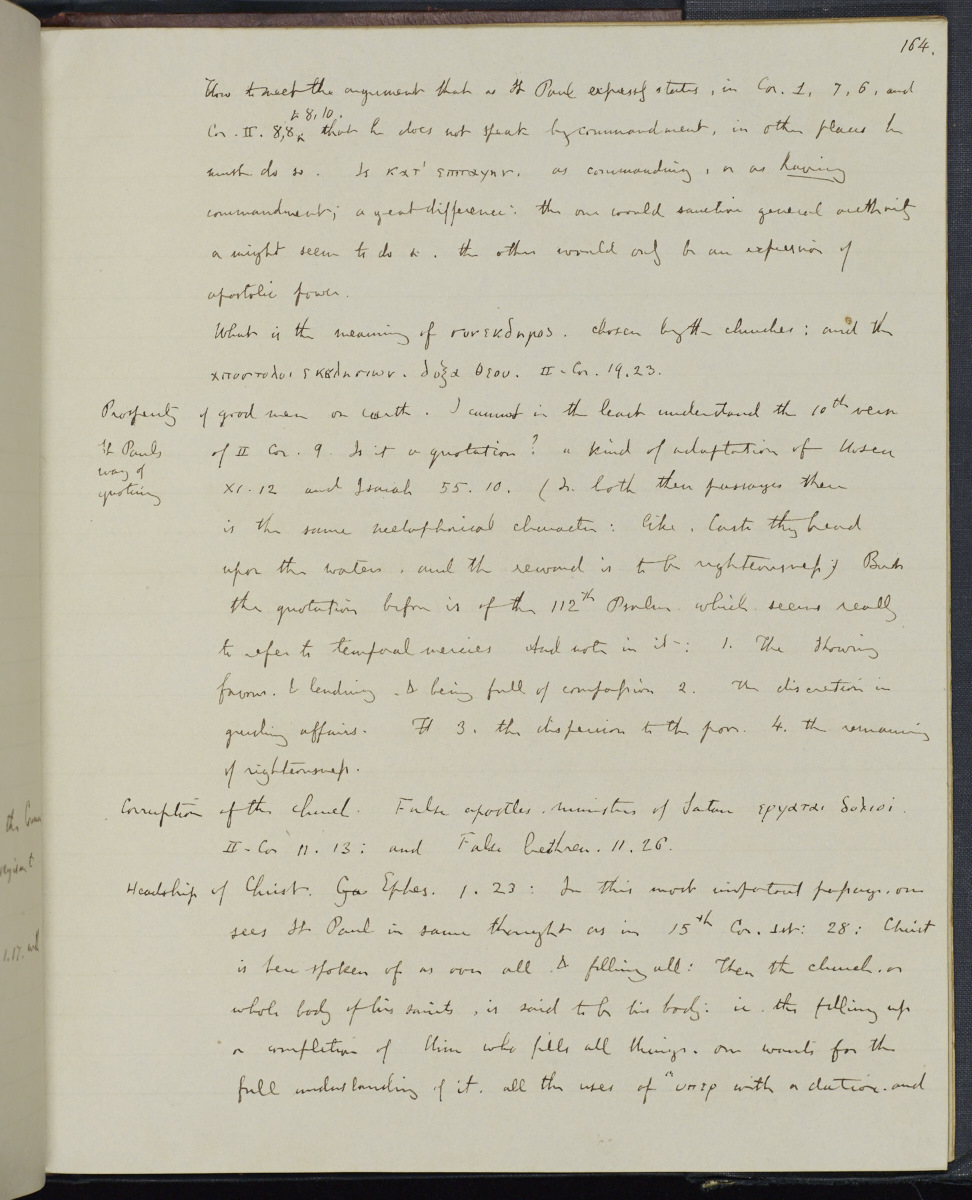 164.
How to meet the argument that as St Paul expressly states, in Cor. 1, 7, 6, and
& 8, 10.
Cor. II. 8,8 that he does not speak by commandment, in other places he
must do so. Is κατ' επιταγην. as commanding, or as having
commandment; a great difference: the one would sanction general authority
or might seem to do so. the other would only be an expression of
apostolic power.
What is the meaning of συνεκδημος. chosen by the churches: and the
αποστολοι εκκλησιων. δοξα θεου. II-Cor. 19.23.
Prosperity of good men on earth. I cannot in the least understand the 10th verse
St Pauls way of quoting
of II Cor. 9. Is it a quotation? a kind of adaptation of Hosea
XI. 12 and Isaiah 55. 10. (In both these passages there
is the same metaphorical character: like. Cast thy bread
upon the waters. and the reward is to be righteousness;) But
the quotation before is of the 112th Psalm which seems really
to refer to temporal mercies And note in it -: 1. The showing
favour. & lending & being full of compassion 2. The discretion in
guiding affairs. 3. the dispersion to the poor. 4. the remaining
of righteousness.
Corruption of the church. False apostles. ministers of Satan εργαται δολιοι.
II-Cor 11. 13: and False brethren. 11. 26.
Headship of Christ. Ephes. 1. 23: In this most important passage. one
sees St Paul in same thought as in 15th Cor. 1st: 28: Christ
is here spoken of as over all & filling all: Then the church. or
whole body of his saints, is said to be his body: ie. the filling up
or completion of Him who fills all things. one wants for the
full understanding of it. all the uses of "υπερ with a dative. and